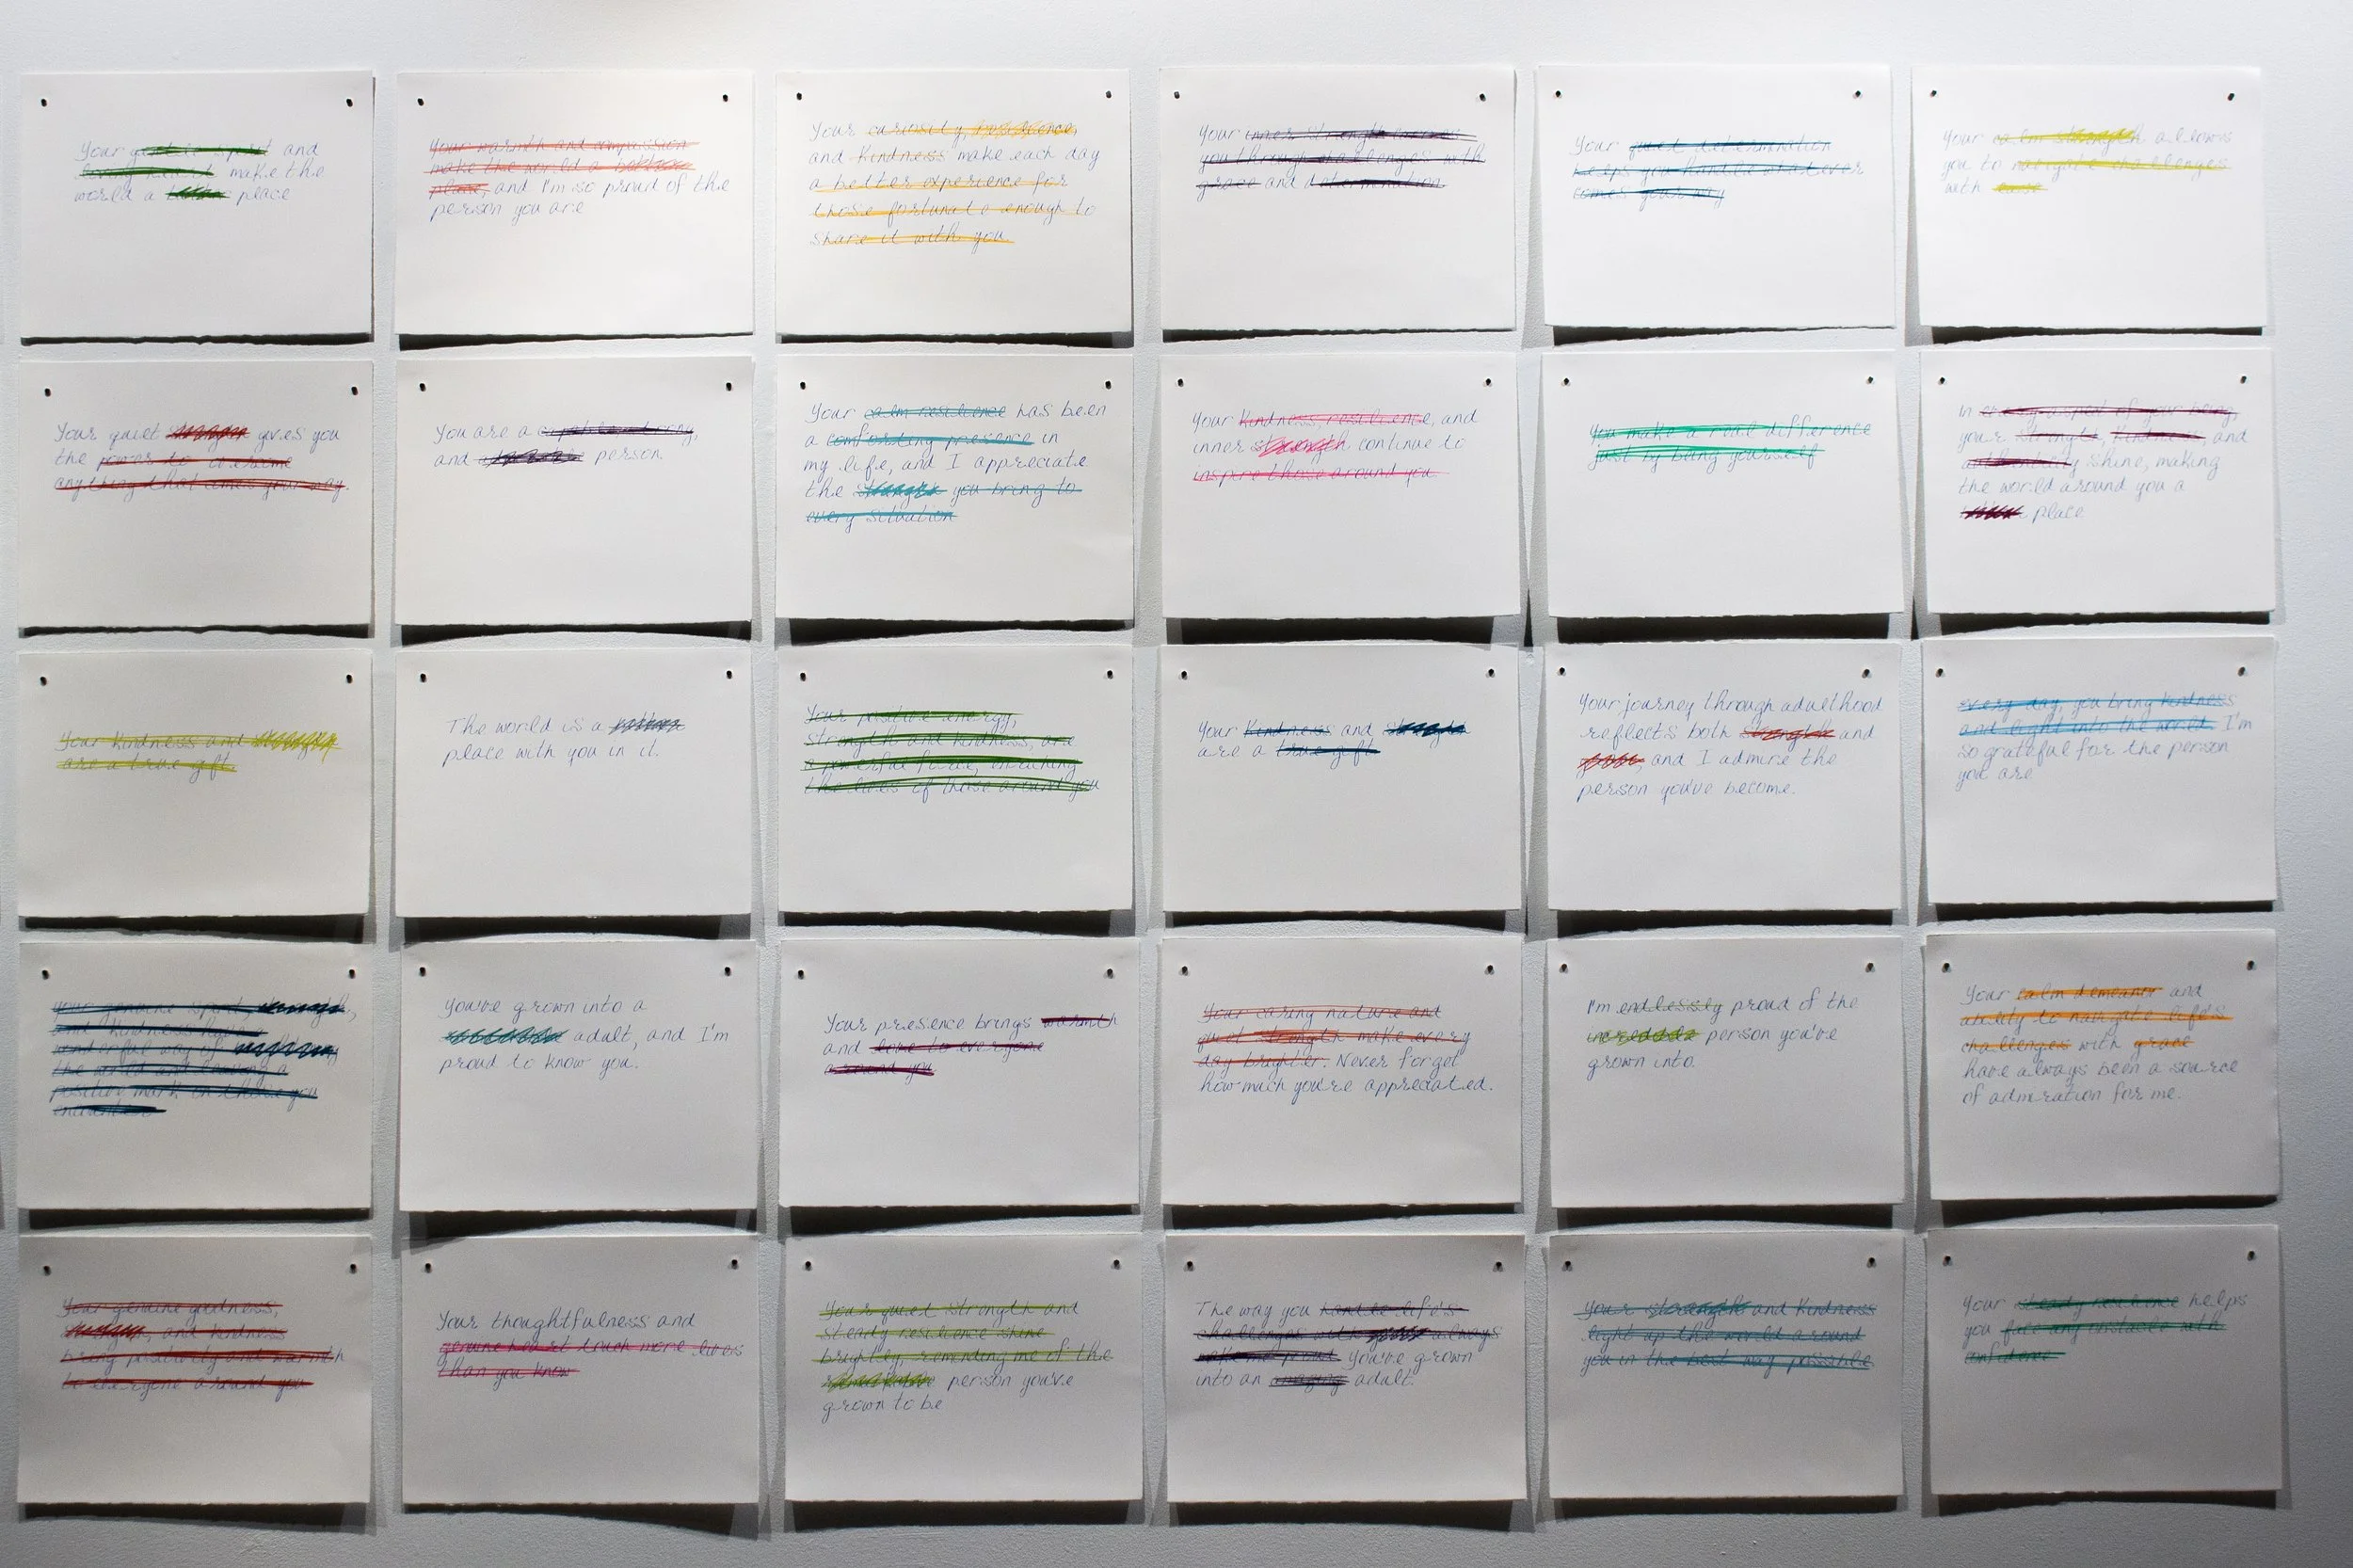 Your gentle spirit and
loving heart make the
world a better place
Your warmth and compassion
make the world a better
place, and I'm so proud of the
person you are
Your curiosity, resilience,
and kindness make each day
a better experience for
those fortunate enough to
share it with you.
Your inner strength carries
you through challenges with
grace and determination.
Your quiet determination
helps you handle whatever
comes your way
Your calm strength allows
you to navigate challenges
with ease
Your quiet strength gives you
the power to overcome
anything that comes your way.
You are a capable, strong,
and person
Your calm resilience has been
a comforting presence in
my life, and I appreciate
the strength you bring to
every situation
Your kindness, resilience, and
inner strength continue to
inspire those around you
You make a real difference
just by being yourself
In every aspect of your being,
your strength, kindness, and
authenticity shine, making
the world around you a
place
Your kindness and strength
are a true gift.
The world is a
place with you in it.
Your positive energy,
strength and kindness, are
a powerful force, enriching
the lives of those around you
Your kindness and strength
are a true gift
Your journey through adulthood
reflects both strength and
grace, and I admire the
person you've become.
Every day, you bring kindness
and light into the world. I'm
so grateful for the person
you are
Your genuine spirit, strength,
and kindness have a
wonderful way of
the world and leaving a
positive mark on those you
encounter
You've grown into a
adult, and I'm
proud to know you.
Your presence brings warmth
and love to everyone
around you.
Your caring nature and
quiet strength make every
day brighter. Never forget
how much you're appreciated.
I'm endlessly proud of the
incredible person you've
grown into.
Your calm demeanor and
ability to navigate life's
challenges with grace
have always been a source
of admiration for me.
Your genuine goodness,
and kindness
bring positivity and warmth
to everyone around you
Your thoughtfulness and
genuine heart touch more lives
than you know
Your quiet strength and
steady resilience shine
brightly, reminding me of the
remarkable person you've
grown to be
The way you handle life's
challenges with grace always
makes me proud. You've grown
into an amazing adult.
Your strength and kindness
light up the world around
you in the best way possible
Your steady resilience helps
you face any obstacle with
confidence